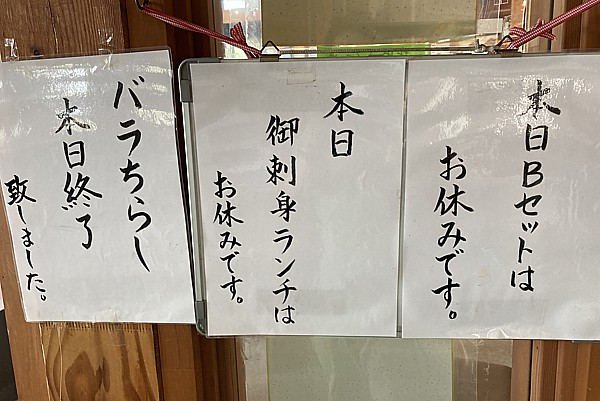 本日Bセットは
お休みです。
本日
御刺身ランチは
お休みです。
バラちらし
本日終了
致しました。